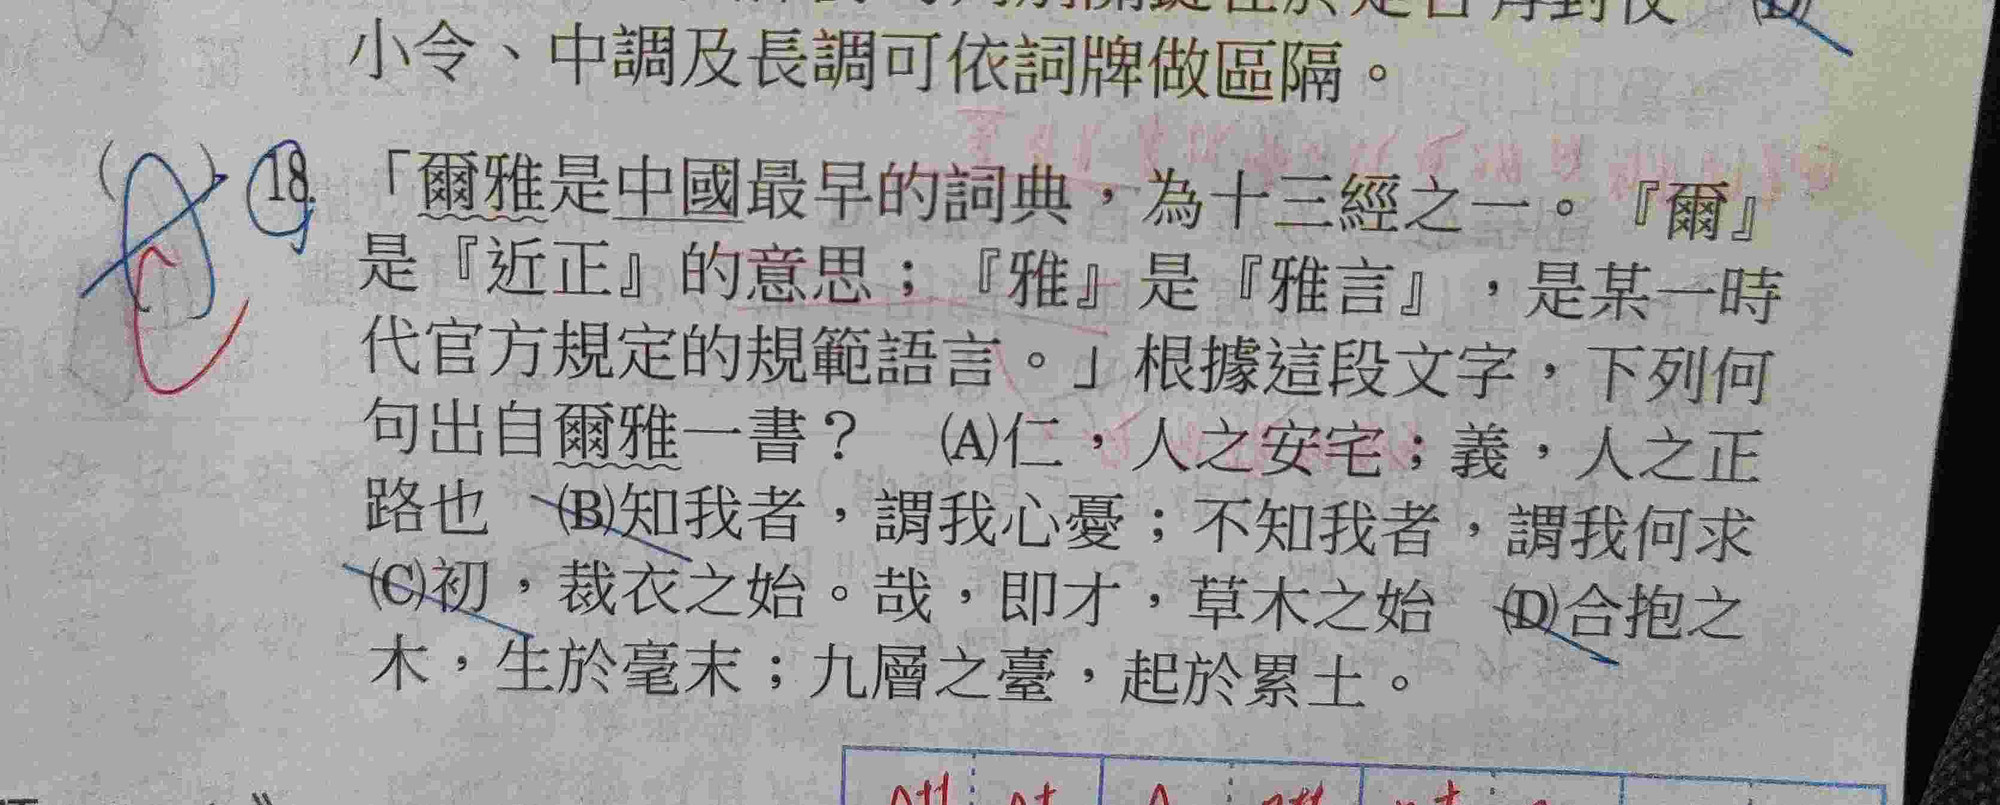 小令、中調及長調可依詞牌做區隔。
18.「爾雅是中國最早的詞典，為十三經之一。『爾』
是『近正』的意思；『雅』是『雅言』，是某一時
代官方規定的規範語言。」根據這段文字，下列何
句出自爾雅一書？　(A)仁，人之安宅；義，人之正
路也　(B)知我者，謂我心憂；不知我者，謂我何求
(C)初，裁衣之始。哉，即才，草木之始　(D)合抱之
木，生於毫末；九層之臺，起於累土。